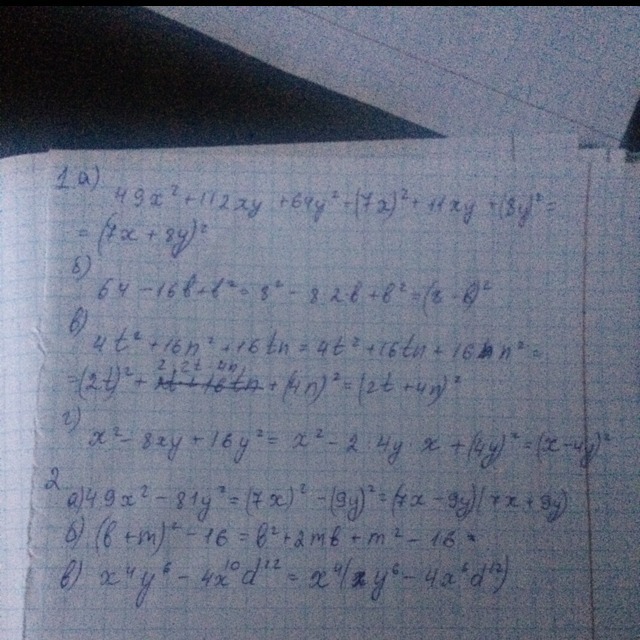 1 а)
49x² + 112xy + 64y² = (7x)² + 11xy + (8y)² =
= (7x + 8y)²
б)
64 - 16b + b² = 8² - 8 2b + b² = (8 - b)²
в)
4t² + 16n² + 16tn = 4t² + 16tn + 16n² =
= (2t)² + 2 2t 4n + (4n)² = (2t + 4n)²
г)
x² - 8xy + 16y² = x² - 2 4y x + (4y)² = (x - 4y)²
2
а) 49x² - 81y² = (7x)² - (9y)² = (7x - 9y)(7x + 9y)
б) (b + m)² - 16 = b² + 2mb + m² - 16 =
в) x⁴y⁶ - 4x⁰d¹² = x⁴(